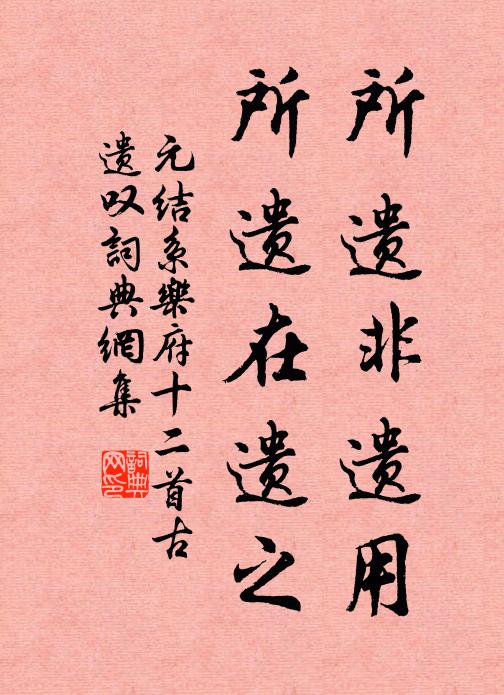 所遗非遗用
所遗在遗之
元结系樂府十二首古
遗叹詞典網集
詞典网印